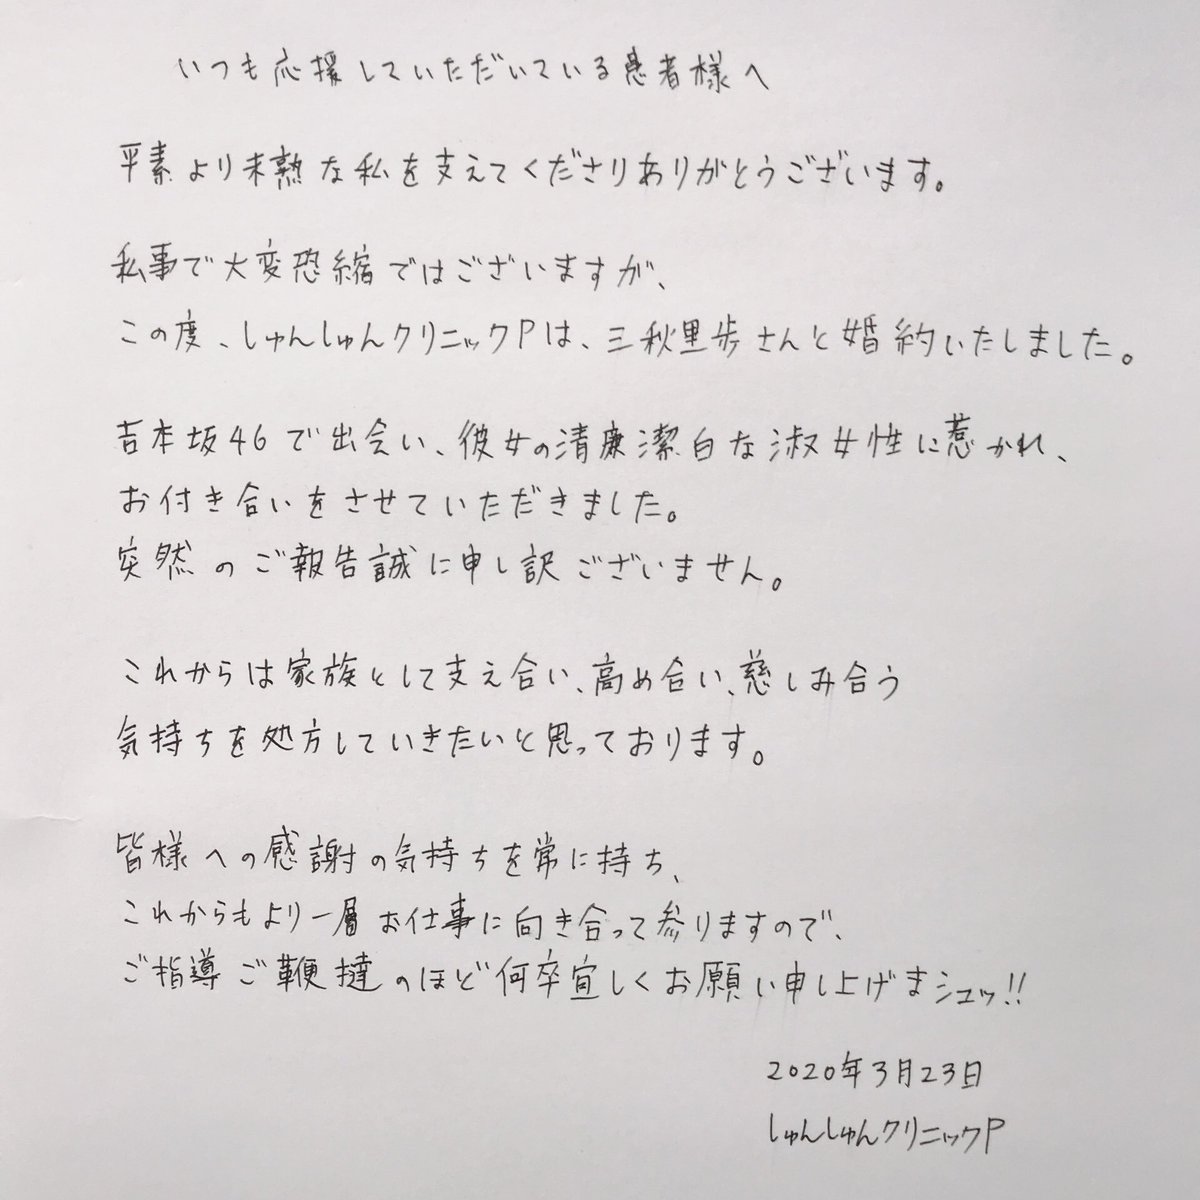 いつも応援していただいている患者様へ
平素より未熟な私を支えてくださりありがとうございます。
私事で大変恐縮ではございますが、
この度、しゅんしゅんクリニックPは、三秋里歩さんと婚約いたしました。
吉本坂46で出会い、彼女の清廉潔白な淑女性に惹かれ、
お付き合いをさせていただきました。
突然のご報告誠に申し訳ございません。
これからは家族として支え合い、高め合い、慈しみ合う
気持ちを処方していきたいと思っております。
皆様への感謝の気持ちを常に持ち、
これからもより一層お仕事に向き合って参りますので、
ご指導ご鞭撻のほど何卒宜しくお願い申し上げまシュッ!!
2020年3月23日
しゅんしゅんクリニックP